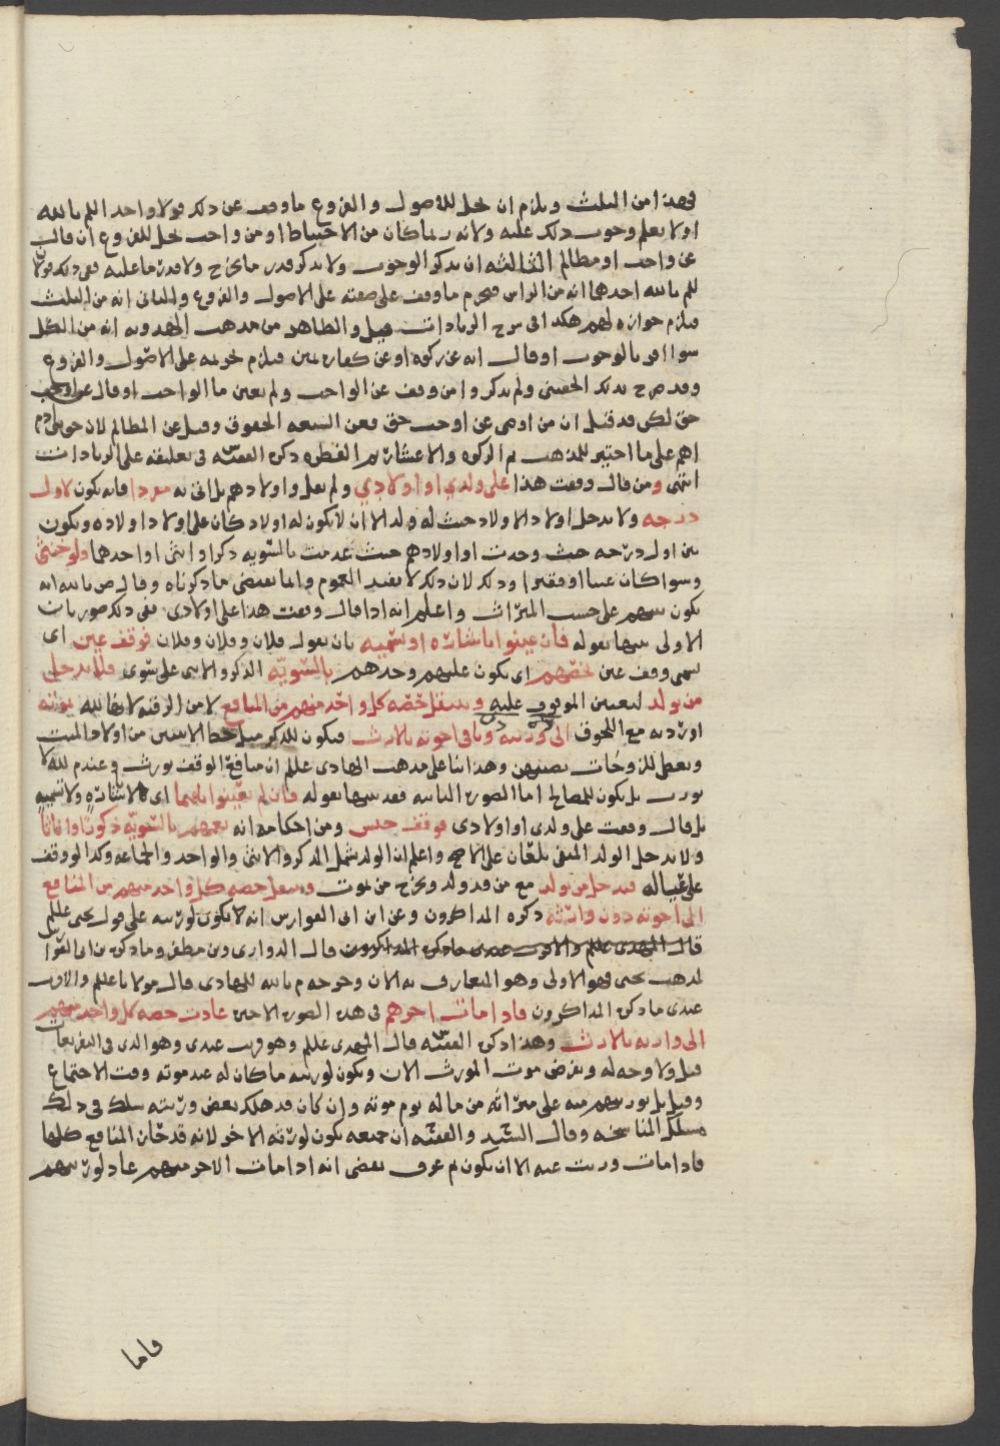 فهذا من الثلث ويلزم ان يحل للاصول والفروع ماوقف عن ذلك قولا واحدا اللم بالله
اولا يعلم وجوب ذلك عليه ولانه ربما كان من الاحتياط او من واجب يحل للفروع ان قال
عن واجب او مظالم الثالثه ان يذكر الوجوب ولا يذكر قدر ما يخرج ولا قدر ما عليه ففي ذلك قولان
للم بالله احدهما انه من الراس فيحرم ماوقف على صفته على الاصول والفروع والثاني انه من الثلث
فيلزم جوازه لهم هكذا في شرح الزيادات قيل والظاهر من مذهب الهدويه انه من الكل
سوا اقر بالوجوب او قال انه عن زكوه او عن كفاره يمين فيلزم تحريمه على الاصول والفروع
وقد صرح بذلك الحفيني ولم يذكروا من وقف عن الواجب ولم يعين ما الواجب او قال عن اوجب
حق لكن قد قيل ان من اوصى عن اوجب حق فعن التبعه الحقوق وقيل عن المظالم لان حق بني ادم
اهم على ما اختير للمذهب ثم الزكوه والاعشار ثم الفطره ذكره الفقيه في تعليقه على الزيادات
انتهى ومن قال وقفت هذا على ولدي او اولادي ولم يقل واولادهم بل اتى به مفردا فانه يكون لاول
درجه ولا يدخل اولاد الاولاد حيث له ولد الا ان لا يكون له اولاد كان على اولاد اولاده ويكون
بين اول درجه حيث وجدت او اولادهم حيث عدمت بالسويه ذكرا وانثى او احدهما ولو خنثى
وسوا كان غنيا او فقيرا وذلك لان ذلك لا يفيد العموم وانما يقتضي ما ذكرناه وقال ص بالله انه
يكون بينهم على حسب الميراث واعلم انه اذا قال وقفت هذا على اولادي ففي ذلك صورتان
الاولى بينها بقوله فان عينوا باشاره او تسميه بان يقول فلان وفلان وفلان فوقف عين اي
يسمى وقف عين تخصهم اي يكون عليهم وحدهم بالسويه الذكر والانثى على سوى فلا يدخل
من يولد لتعيين الموقوف عليه وينتقل حصه كل واحد منهم من المنافع لا من الرقبه لانها لله بموته
او ردته مع اللحوق الى ورثته وباقي اخوته بالارث فيكون للذكر مثل حظ الانثيين من اولاد الميت
ويعطى للزوجات نصيبهن وهذا بنا على مذهب الهادي عللم ان منافع الوقف تورث وعند م لله لا
تورث بل يكون للمصالح اما الصوره الثانيه فقد بينها بقوله فان لم يعينوا بايهما اي لا باشاره ولا تسميه
بل قال وقفت على ولدي او اولادي فوقف جنس ومن احكامه انه يعمهم بالسويه ذكورا واناثا
ولا يدخل الولد المنفي بلعان على الاصح واعلم ان الولد يشمل الذكر والانثى والواحد والجماعه وكذا لو وقف
على عياله فيدخل من يولد مع من قد ولد ويخرج من يموت وينتقل حصه كل واحد منهم من المنافع
الى اخوته دون وارثه ذكره المذاكرون وعن ابن ابي الفوارس انه لا يكون لورثته على قول يحيى عللم
قال المهدي عللم والاقرب عندي ماذكره المذاكرون قال الدواري وبن مظفر وماذكره بن ابي الفوا
لمذهب يحيى فهو الاولى وهو المتعارف به الان وخرجه م بالله للهادي قال مولانا عللم والاقرب
عندي ماذكره المذاكرون فاذا مات اخرهم في هذه الصوره الاخيره عادت حصه كل واحد منهم
الى وارثه بالارث وهذا ذكره الفقيه قال المهدي عللم وهو قريب عندي وهو الذي في التفريعات
قيل ولا وجه له ويفرض موت المورث الان ويكون لورثته ما كان له عند موته وقت الاجتماع
وقيل بل يورثهم منه على ميراثه من ماله يوم موته وان كان قد هلك بعض ورثته سلك في ذلك
مسلك المناسخه وقال السيد والفقيه ان جميعه يكون لورثه الاخر لانه قد حاز المنافع كلها
فاذا مات ورثت عنه الا ان يكون ثم عرف يقضي انه اذا مات الاخر منهم عاد لورثتهم
فاما